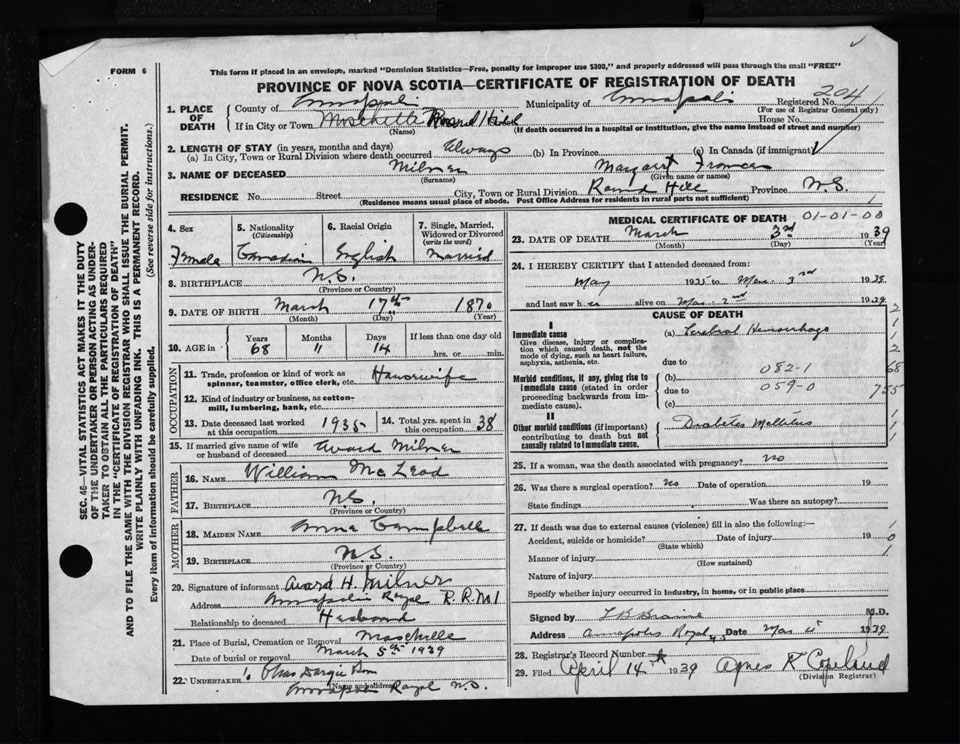 FORM 6
This form if placed in an envelope, marked "Dominion Statistics—Free, penalty for improper use $300," and properly addressed will pass through the mail "FREE"
PROVINCE OF NOVA SCOTIA—CERTIFICATE OF REGISTRATION OF DEATH
204
1. PLACE OF DEATH
County of Annapolis Municipality of Annapolis Registered No.
(For use of Registrar General only)
If in City or Town Moschelle Round Hill House No.
(Name) (If death occurred in a hospital or institution, give the name instead of street and number)
2. LENGTH OF STAY (in years, months and days)
(a) In City, Town or Rural Division where death occurred Always (b) In Province (c) In Canada (if immigrant)
3. NAME OF DECEASED Milner Margaret Frances
(Surname) (Given name or names)
RESIDENCE No. Street City, Town or Rural Division Round Hill Province N.S.
(Residence means usual place of abode. Post Office Address for residents in rural parts not sufficient)
4. Sex Female
5. Nationality (Citizenship) Canadian
6. Racial Origin English
7. Single, Married, Widowed or Divorced (write the word) Married
8. BIRTHPLACE N.S.
(Province or Country)
9. DATE OF BIRTH March 17th 1870
(Month) (Day) (Year)
10. AGE in Years 68 Months 11 Days 14 If less than one day old hrs. or min.
OCCUPATION
11. Trade, profession or kind of work as spinner, teamster, office clerk, etc. Housewife
12. Kind of industry or business, as cotton-mill, lumbering, bank, etc.
13. Date deceased last worked at this occupation 1935
14. Total yrs. spent in this occupation 38
15. If married give name of wife or husband of deceased Avard Milner
FATHER
16. NAME William McLeod
17. BIRTHPLACE N.S.
(Province or Country)
MOTHER
18. MAIDEN NAME Anna Campbell
19. BIRTHPLACE N.S.
(Province or Country)
20. Signature of informant Avard H. Milner
Address Annapolis Royal R.R. No 1
Relationship to deceased Husband
21. Place of Burial, Cremation or Removal Moschelle
Date of burial or removal March 5th 1939
22. UNDERTAKER Chas Dargie Son
(Name and address)
Annapolis Royal N.S.
MEDICAL CERTIFICATE OF DEATH 01-01-00
23. DATE OF DEATH March 3rd 1939
(Month) (Day) (Year)
24. I HEREBY CERTIFY that I attended deceased from:
May 1935 to Mar. 3rd 1939
and last saw her alive on Mar. 2nd 1939
CAUSE OF DEATH
I
Immediate cause
Give disease, injury or complication which caused death, not the mode of dying, such as heart failure, asphyxia, asthenia, etc.
(a) Cerebral Hemorrhage
due to
Morbid conditions, if any, giving rise to immediate cause (stated in order proceeding backwards from immediate cause).
(b) 082-1
due to 059-0
(c)
II
Other morbid conditions (if important) contributing to death but not causally related to immediate cause.
Diabetes Mellitus
25. If a woman, was the death associated with pregnancy? no
26. Was there a surgical operation? No Date of operation 19
State findings Was there an autopsy?
27. If death was due to external causes (violence) fill in also the following:—
Accident, suicide or homicide? Date of injury 19
(State which)
Manner of injury
(How sustained)
Nature of injury
Specify whether injury occurred in industry, in home, or in public place
Signed by L B Braine M.D.
Address Annapolis Royal Date Mar 1939
28. Registrar's Record Number
29. Filed April 14 1939 Agnes R Copeland
(Division Registrar)
SEC. 46—VITAL STATISTICS ACT MAKES IT THE DUTY
OF THE UNDERTAKER OR PERSON ACTING AS UNDER-
TAKER TO OBTAIN ALL THE PARTICULARS REQUIRED
IN THE "CERTIFICATE OF REGISTRATION OF DEATH"
AND TO FILE THE SAME WITH THE DIVISION REGISTRAR WHO SHALL ISSUE THE BURIAL PERMIT.
WRITE PLAINLY WITH UNFADING INK. THIS IS A PERMANENT RECORD.
Every item of information should be carefully supplied. (See reverse side for instructions.)